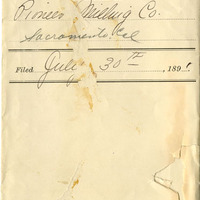 Pioneer Milling Co.
Sacramento, Cal
Filed July 30th, 1891